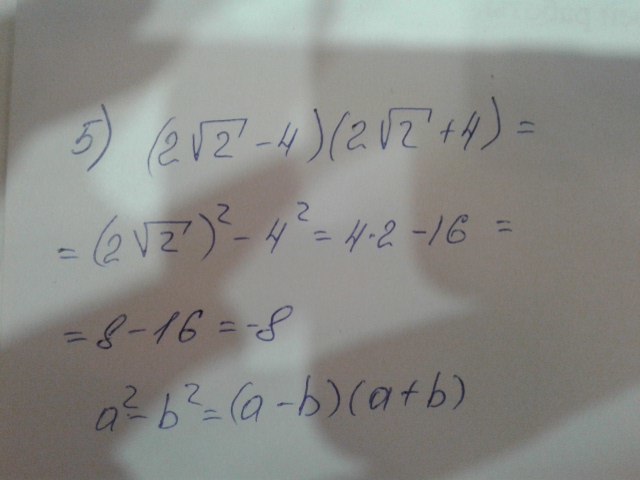 5) (2√2 - 4)(2√2 + 4) =
= (2√2)² - 4² = 4·2 - 16 =
= 8 - 16 = -8
a² - b² = (a - b)(a + b)